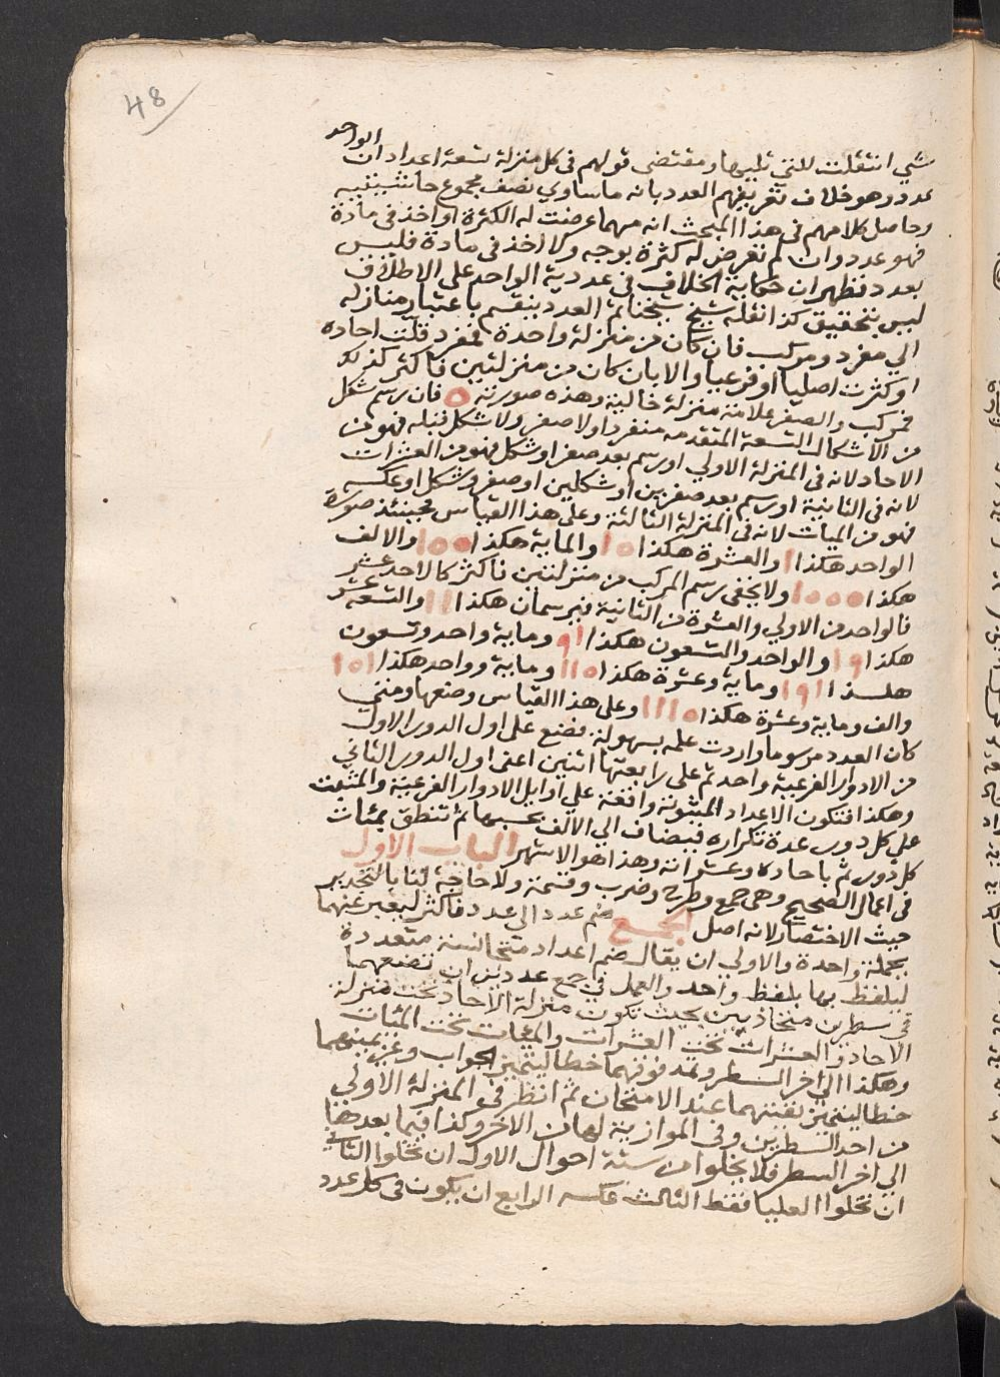 48
شي انتقلت للتي تليها ومقتضى قولهم في كل منزلة تسعة اعداد ان الواحد
عدد وهو خلاف تعريفهم العدد بانه ما ساوي نصف مجموع حاشيتيه
وحاصل كلامهم في هذا المبحث انه مهما عرضت له الكثرة او اخذ في مادة
فهو عدد وان لم تعرض له كثرة بوجه ولا اخذ في مادة فليس
بعدد فظهر ان حكاية الخلاف في عددية الواحد على الاطلاق
ليس بتحقيق كذا نقله شيخ شيخنا ثم العدد ينقسم باعتبار منازله
الي مفرد ومركب فان كان من منزلة واحدة فمفرد قلت احاده
او كثرت اصليا او فرعيا والا بان كان من منزلتين فاكثر كذلك
فمركب والصفر علامة منزلة خالية وهذه صورته ٥ فان رسم شكل
من الاشكال التسعة المتقدمه منفردا ولا صفر ولا شكل قبله فهو من
الاحاد لانه في المنزلة الاولي او رسم بعد صفر او شكل فهو من العشرات
لانه في الثانية او رسم بعد صفرين او شكلين او صفر وشكل او عكسه
فهو من الميات لانه في المنزلة الثالثة وعلى هذا القياس فحينئذ صورة
الواحد هكذا ١ والعشرة هكذا ١٥ والماية هكذا ١٥٥ والالف
هكذا ١٥٥٥ ولا يخفى رسم المركب من منزلتين فاكثر كالاحد عشر
فالواحد من الاولي والعشرة من الثانية فيرسمان هكذا ١١ والتسعة عشر
هكذا ١٩ والواحد والتسعون هكذا ٩١ وماية واحد وتسعون
هكذا ١٩١ وماية وعشرة هكذا ١١٥ وماية وواحد هكذا ١٥١
والف وماية وعشرة هكذا ١١١٥ وعلى هذا القياس وضعها ومتي
كان العدد مرسوما واردت علمه بسهولة فضع على اول الدور الاول
من الادوار الفرعية واحد ثم على رابعتها اثنين اعني اول الدور الثاني
وهكذا فتكون الاعداد المبثوثة واقعة علي اوايل الادوار الفرعية والمثبت
على كل دور عدة تكراره فيضاف الي الالف بحسبها ثم تنطق بمئات
كل دور ثم باحاده وعشراته وهذا هو الاشهر الباب الاول
في اعمال الصحيح وهي جمع وطرح وضرب وقسمة ولا حاجة لنا بالتجذير
حيث الاختصار لانه اصل الجمع ضم عدد الي عدد فاكثر ليعبر عنهما
بجملة واحدة والاولي ان يقال ضم اعداد متجانسة متعددة
ليلفظ بها بلفظ واحد والعمل في جمع عددين ان تضعهما
في سطرين متحاذيين بحيث تكون منزلة الاحاد تحت منزلة
الاحاد والعشرات تحت العشرات والميات تحت المئات
وهكذا الي اخر السطر وتمد فوقهما خطا ليتميز الجواب وعن يمينهما
خطا ليتميز بقيتهما عند الامتحان ثم انظر في المنزلة الاولي
من احد السطرين وفي الموازية لها من الاخر وكذا فيما بعدها
الي اخر السطر فلا يخلوا من ستة احوال الاول ان تخلوا الثاني
ان تخلوا العليا فقط الثالث عكسه الرابع ان يكون في كل عدد